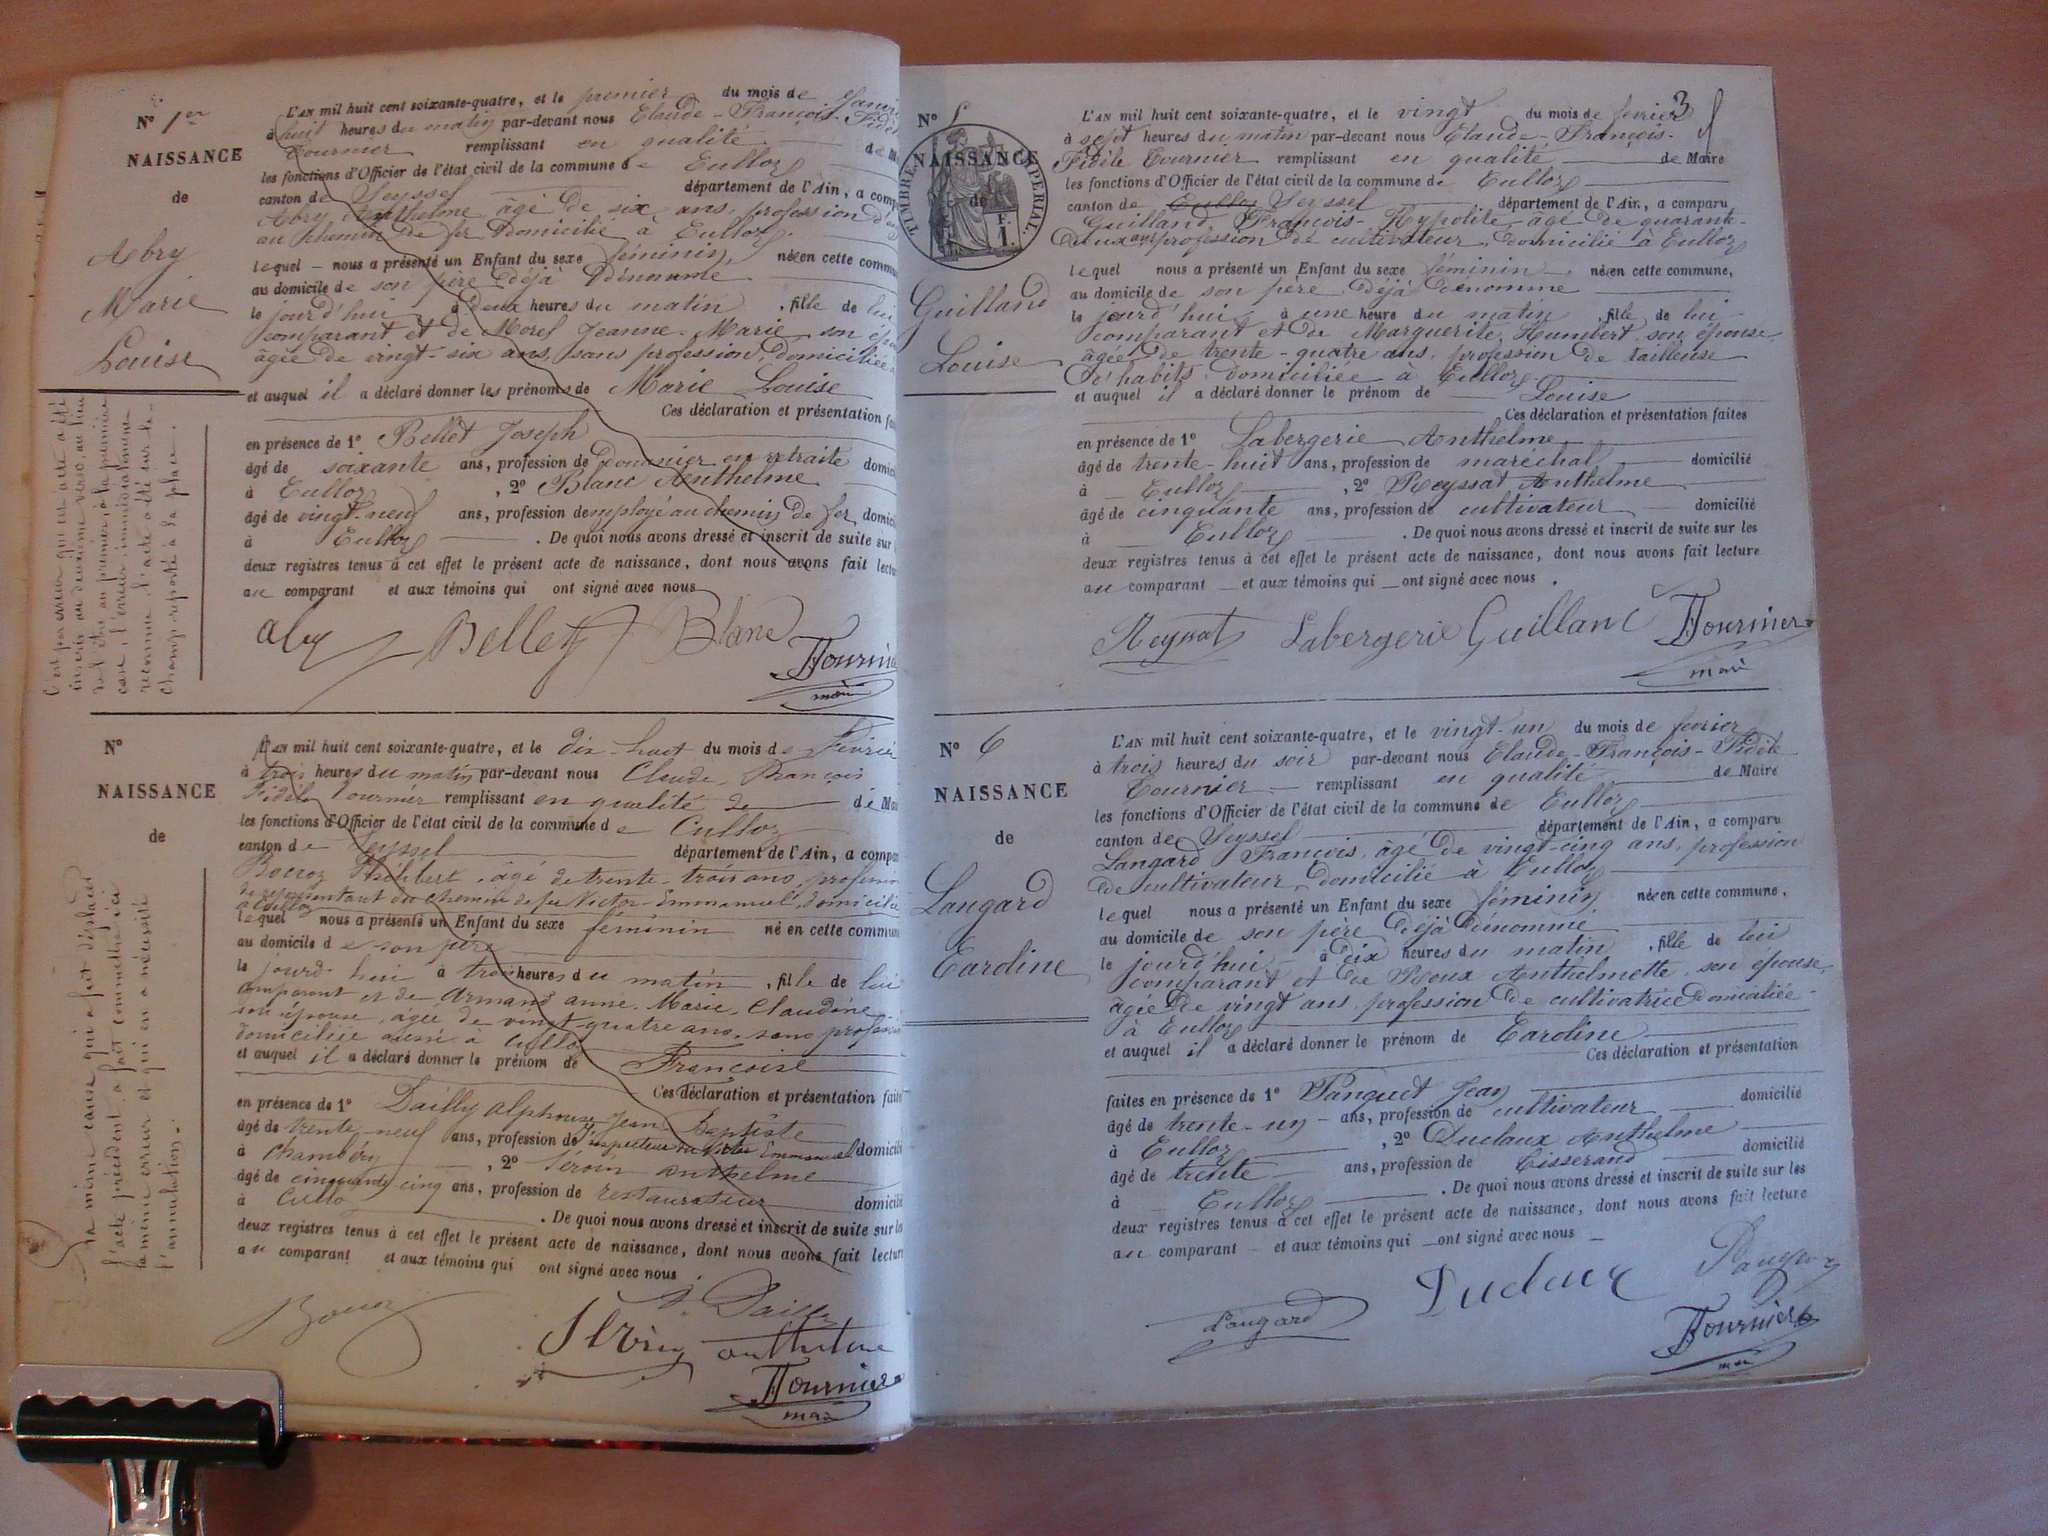 N° 1er
NAISSANCE
de
Abry
Marie
Louise
L'AN mil huit cent soixante-quatre, et le premier du mois de Janvi
à huit heures du matin par-devant nous Claude-François-Fidè
Tournier remplissant en qualité de M
les fonctions d'Officier de l'état civil de la commune de Culloz
canton de Seyssel département de l'Ain, a compa
Abry Anthelme âgé de six ans, profession d'em
au chemin de fer domicilié à Culloz
lequel nous a présenté un Enfant du sexe féminin, née en cette commu
au domicile de son père déjà dénommé
le jourd'hui à deux heures du matin, fille de lui
comparant et de Morel Jeanne-Marie son épou
âgée de vingt-six ans, sans profession, domiciliée
et auquel il a déclaré donner les prénoms de Marie Louise
Ces déclaration et présentation fai
en présence de 1° Bellet Joseph
âgé de soixante ans, profession de douanier en retraite domici
à Culloz, 2° Blanc Anthelme
âgé de vingt-neuf ans, profession d'employé au chemin de fer domici
à Culloz. De quoi nous avons dressé et inscrit de suite sur
deux registres tenus à cet effet le présent acte de naissance, dont nous avons fait lectu
au comparant et aux témoins qui ont signé avec nous
Abry Bellet Blanc
FTournier
maire
C'est par erreur que cet acte a été
inscrit au deuxième verso, au lieu
de l'être au premier à la première
case, l'erreur immédiatement
reconnue, l'acte a été sur le
champ reporté à sa place.
N°
NAISSANCE
de
L'AN mil huit cent soixante-quatre, et le dix-huit du mois de Février
à trois heures du matin par-devant nous Claude François
Fidèle Tournier remplissant en qualité de de Mai
les fonctions d'Officier de l'état civil de la commune de Culloz
canton de Seyssel département de l'Ain, a compa
Philibert, âgé de trente-trois ans, profession
de représentant du chemin de fer Victor-Emmanuel, domicilié
à Culloz
lequel nous a présenté un Enfant du sexe féminin né en cette commun
au domicile de son père
le jourd'hui à trois heures du matin, fille de lui
comparant et de Armand Anne-Marie, Claudine
son épouse, âgée de vingt-quatre ans, sans profession
domiciliée aussi à Culloz
et auquel il a déclaré donner le prénom de Françoise
Ces déclaration et présentation faites
en présence de 1° Dailly Alphonse Jean Baptiste
âgé de trente-neuf ans, profession d'inspecteur du Victor Emmanuel domicili
à Chambéry, 2° Séroin Anthelme
âgé de cinquante cinq ans, profession de restaurateur domicilié
à Culloz. De quoi nous avons dressé et inscrit de suite sur les
deux registres tenus à cet effet le présent acte de naissance, dont nous avons fait lecture
au comparant et aux témoins qui ont signé avec nous.
Dailly
anthelme
FTournier
maire
La même cause qui a fait déplacer
l'acte précédent, a fait commettre ici
la même erreur et qui en a nécessité
l'annulation.
3
N° 5
NAISSANCE
de
TIMBRE IMPERIAL
1 F.
Guilland
Louise
L'AN mil huit cent soixante-quatre, et le vingt du mois de février
à sept heures du matin par-devant nous Claude-François-
Fidèle Tournier remplissant en qualité de Maire
les fonctions d'Officier de l'état civil de la commune de Culloz
canton de Culloz Seyssel département de l'Ain, a comparu
Guilland François-Hypolite âgé de quarante-
deux ans profession de cultivateur, domicilié à Culloz
lequel nous a présenté un Enfant du sexe féminin, née en cette commune,
au domicile de son père déjà dénommé
le jourd'hui à une heure du matin, fille de lui
comparant et de Marguerite Humbert son épouse,
âgée de trente-quatre ans, profession de tailleuse
d'habits, domiciliée à Culloz
et auquel il a déclaré donner le prénom de Louise
Ces déclaration et présentation faites
en présence de 1° Labergerie Anthelme
âgé de trente-huit ans, profession de maréchal domicilié
à Culloz, 2° Reyssat Anthelme
âgé de cinquante ans, profession de cultivateur domicilié
à Culloz. De quoi nous avons dressé et inscrit de suite sur les
deux registres tenus à cet effet le présent acte de naissance, dont nous avons fait lecture
au comparant et aux témoins qui ont signé avec nous.
Reyssat Labergerie Guilland FTournier
maire
N° 6
NAISSANCE
de
Langard
Caroline
L'AN mil huit cent soixante-quatre, et le vingt-un du mois de février
à trois heures du soir par-devant nous Claude-François-Fidèle
Tournier remplissant en qualité de Maire
les fonctions d'Officier de l'état civil de la commune de Culloz
canton de Seyssel département de l'Ain, a comparu
Langard François, âgé de vingt-cinq ans, profession
de cultivateur, domicilié à Culloz
lequel nous a présenté un Enfant du sexe féminin née en cette commune,
au domicile de son père déjà dénommé
le jourd'hui à dix heures du matin, fille de lui
comparant et de Roux Anthelmette son épouse,
âgée de vingt ans, profession de cultivatrice domiciliée
à Culloz
et auquel il a déclaré donner le prénom de Caroline
Ces déclaration et présentation
faites en présence de 1° Panquet Jean
âgé de trente-un ans, profession de cultivateur domicilié
à Culloz, 2° Duclaux Anthelme
âgé de trente ans, profession de tisserand domicilié
à Culloz. De quoi nous avons dressé et inscrit de suite sur les
deux registres tenus à cet effet le présent acte de naissance, dont nous avons fait lecture
au comparant et aux témoins qui ont signé avec nous
Langard
FTournier
maire